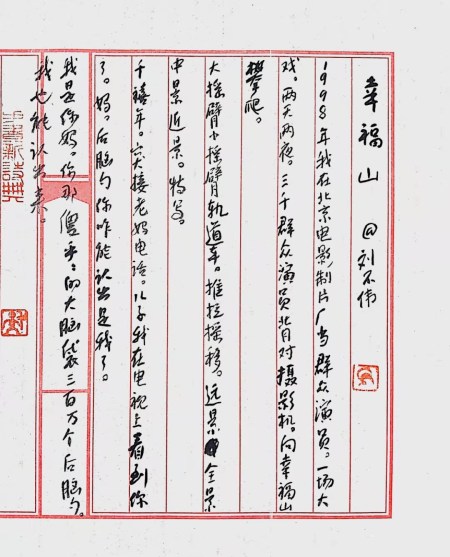 幸福山 @刘不伟
1998年我在北京电影制片厂当群众演员。一场大
戏。两天两夜。三千群众演员背对摄影机。向幸福山
攀爬。
大摇臂小摇臂轨道车。推拉摇移。远景全景
中景近景。特写。
千禧年。突接老妈电话。儿子我在电视上看到你
了。妈。后脑勺你咋能认出是我了。
我是你妈。你那乎:的大脑袋三百万个后脑勺。
我也能认出来。